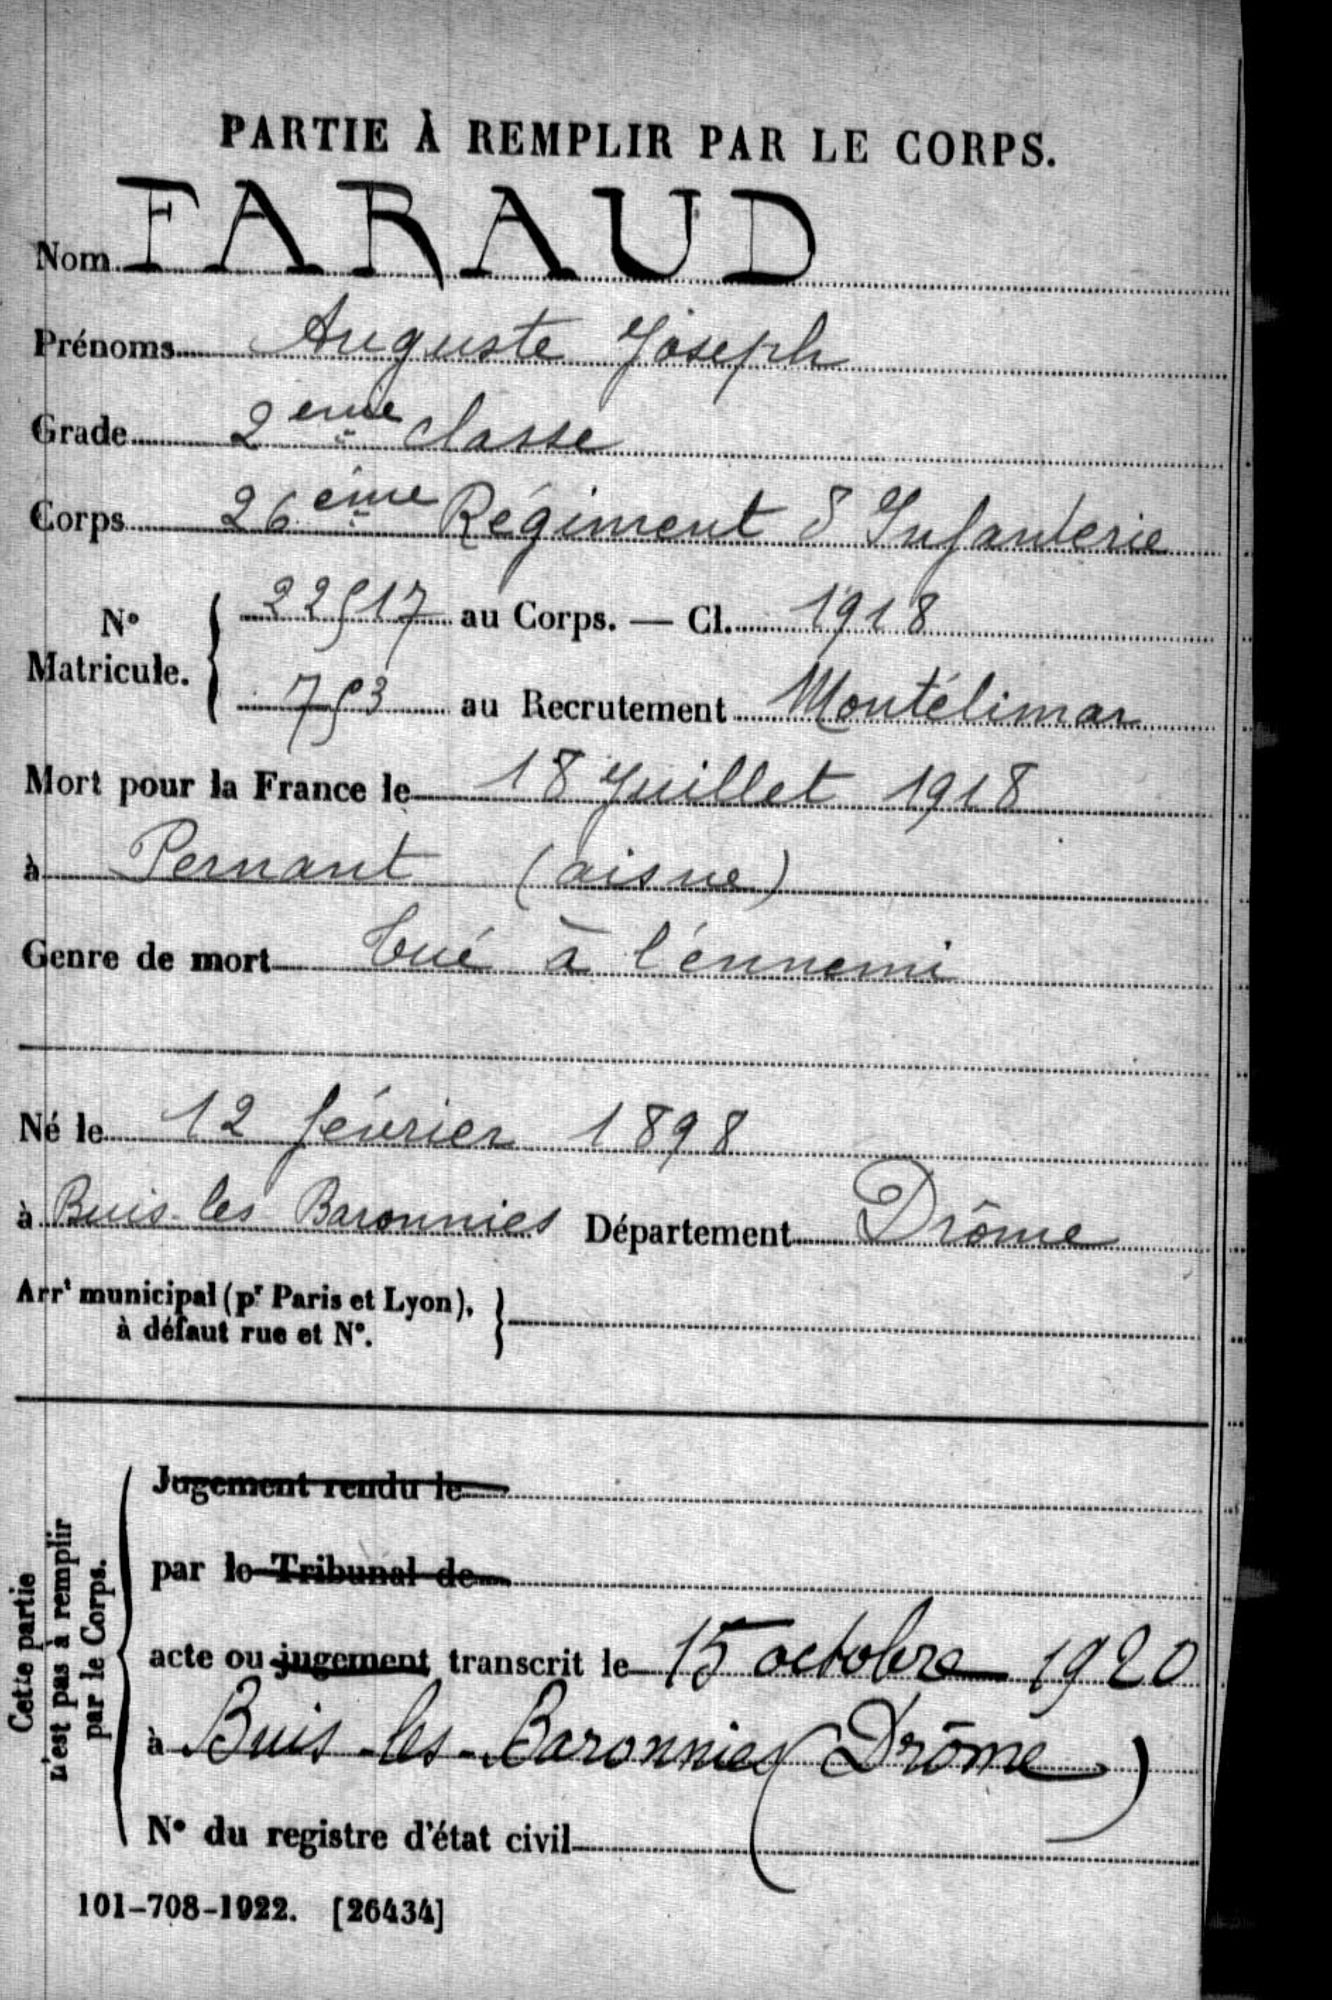 PARTIE À REMPLIR PAR LE CORPS.
Nom FARAUD
Prénoms Auguste Joseph
Grade 2ème classe
Corps 26ème Régiment d'Infanterie
N° Matricule. { 22517 au Corps. — Cl. 1918
753 au Recrutement Montélimar
Mort pour la France le 18 Juillet 1918
à Pernant (aisne)
Genre de mort tué à l'énnemi
Né le 12 février 1898
à Buis-les Baronnies Département Drôme
Arrt municipal (pr Paris et Lyon), }
à défaut rue et N°.
Cette partie
n'est pas à remplir
par le Corps.
Jugement rendu le
par le Tribunal de
acte ou jugement transcrit le 15 octobre 1920
à Buis-les-Baronnies (Drôme)
N° du registre d'état civil
101-708-1922. [26434]